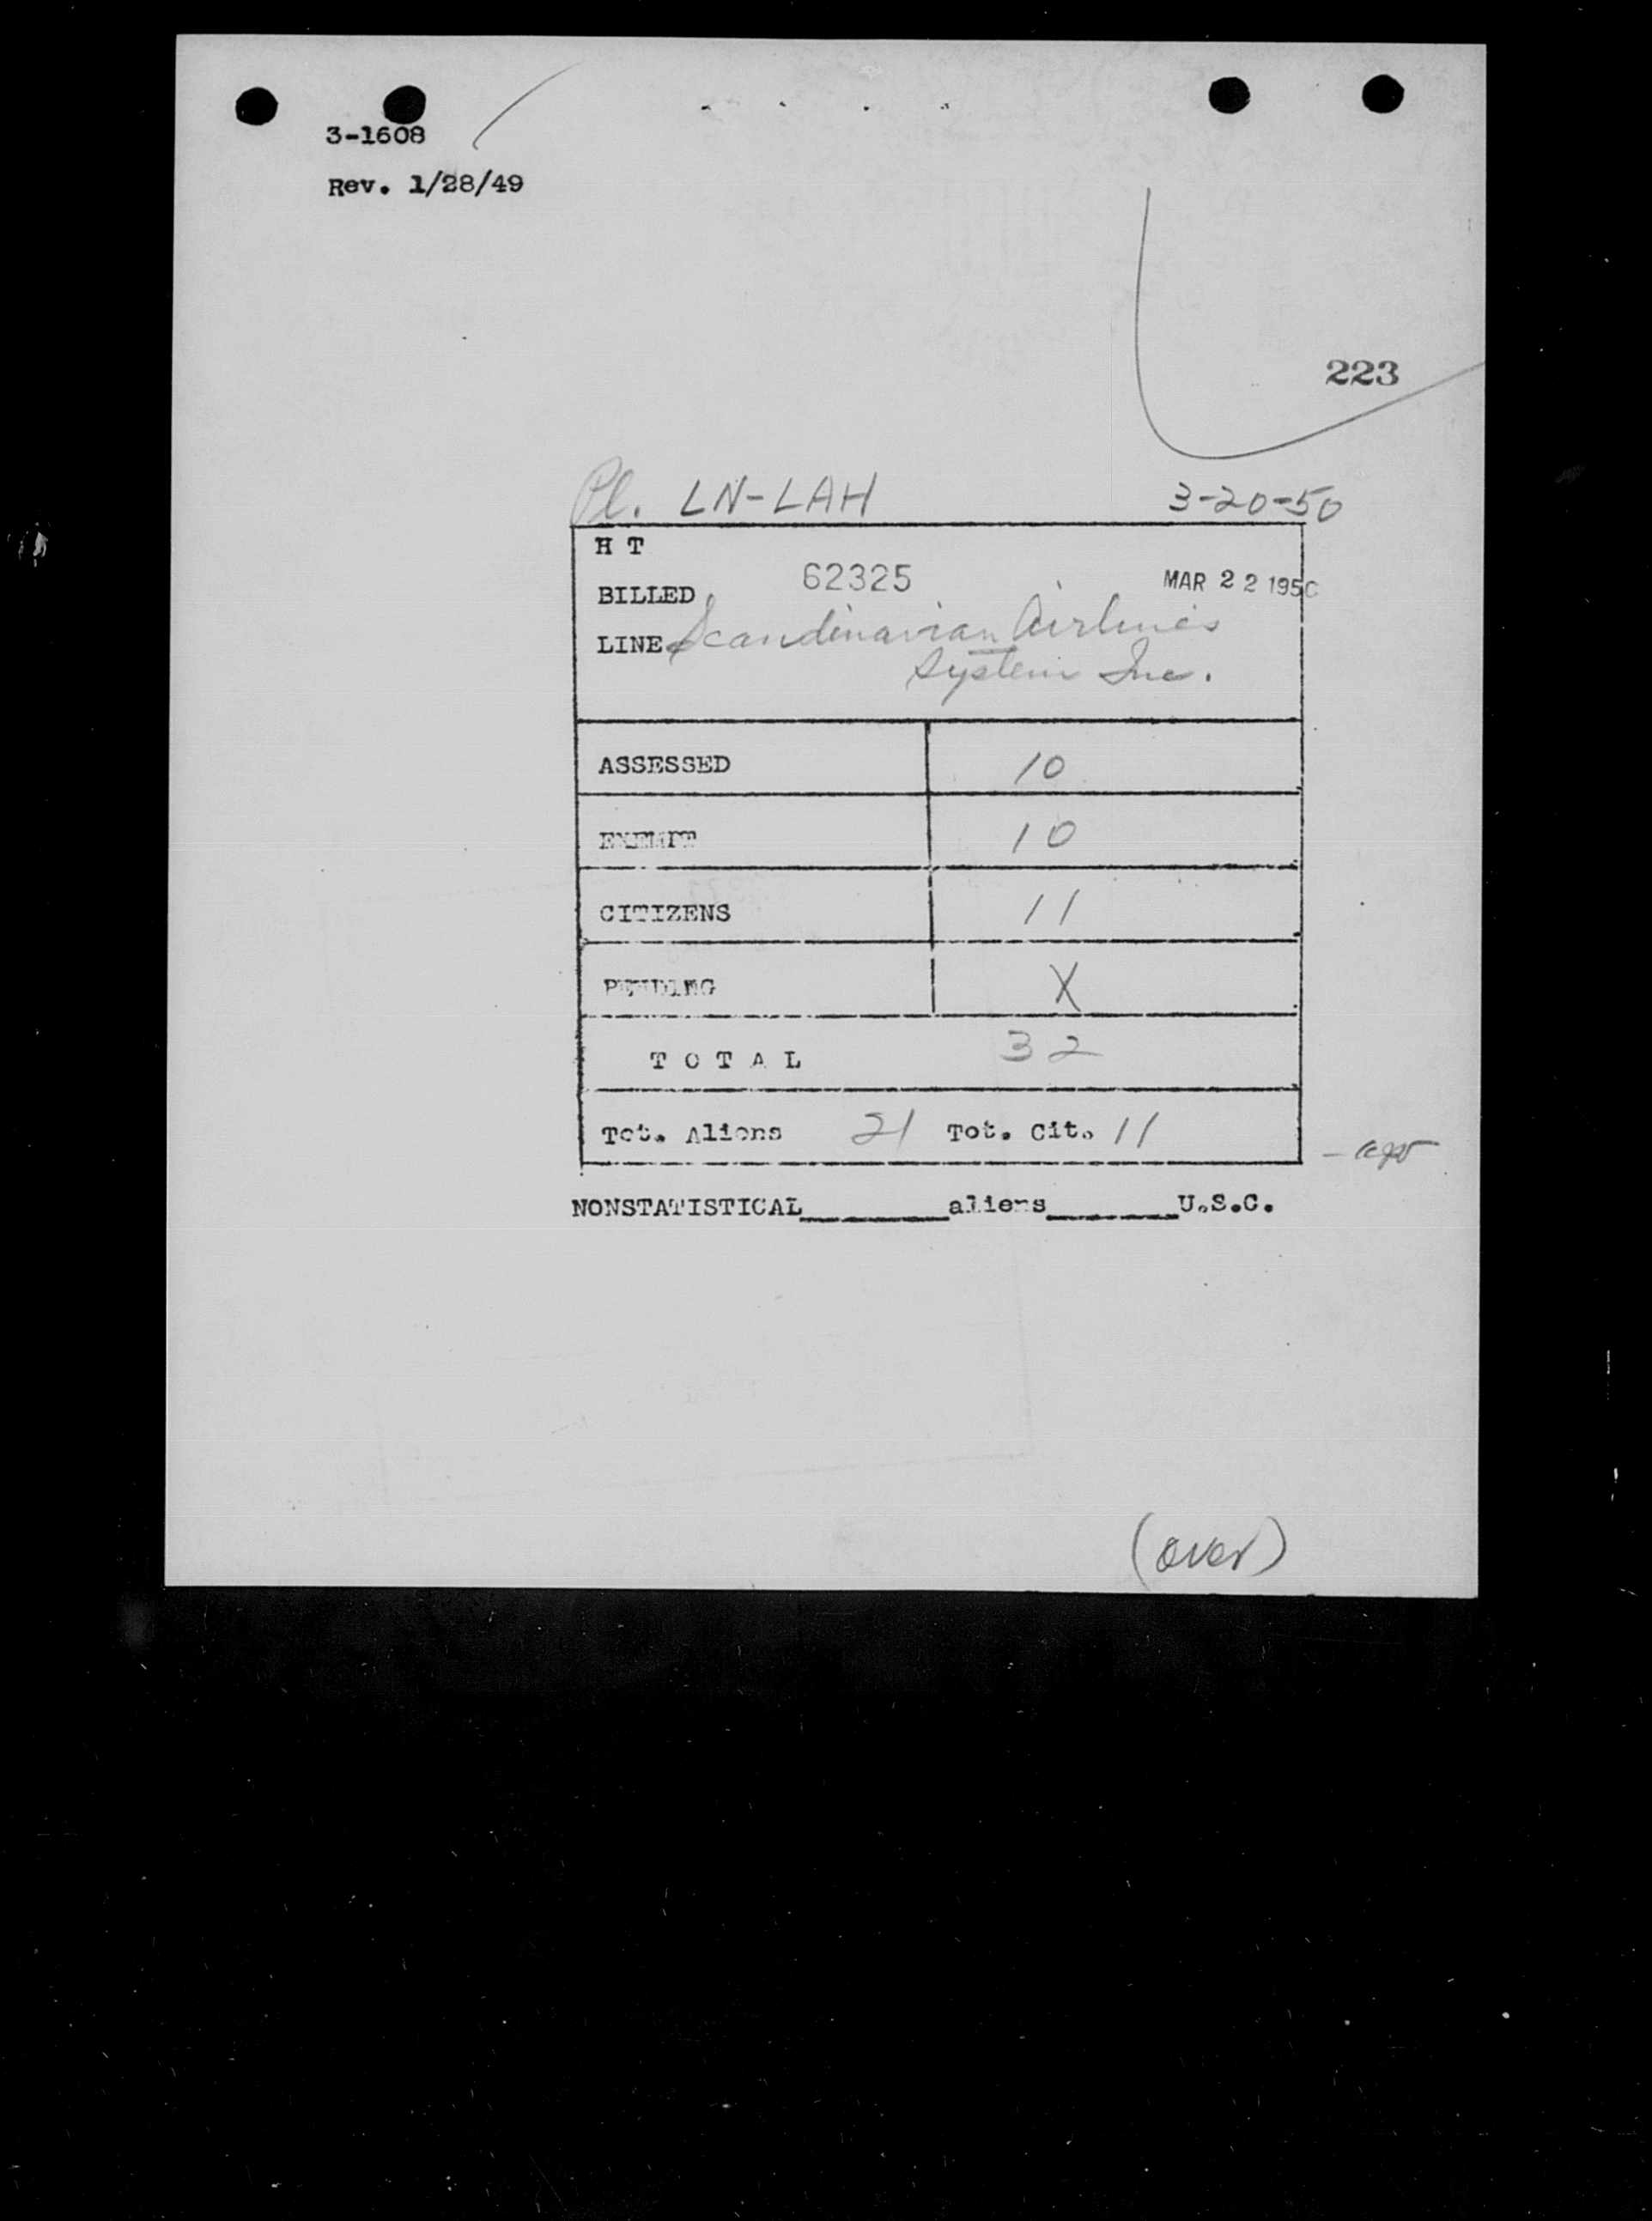 3-1608
Rev. 1/28/49
223
Pl. LN-LAH 3-20-50
H T
BILLED 62325 MAR 22 1950
LINE Scandinavian Airlines
System Inc.
ASSESSED 10
EXEMPT 10
CITIZENS 11
PENDING X
T O T A L 32
Tot. Aliens 21 Tot. Cit. 11
NONSTATISTICAL________aliens_______U.S.C.
(over)